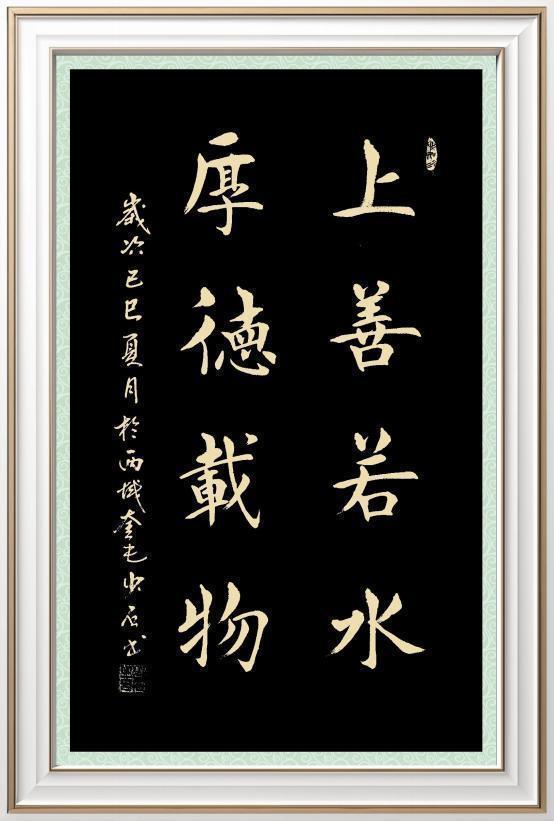 上善若水
厚德載物
歲次己巳夏月於西域奎屯少石书